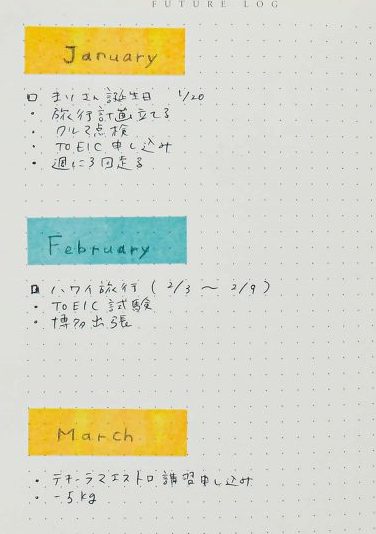 FUTURE LOG
January
まりさん誕生日 1/20
・旅行計画立てる
・クルマ点検
・TOEIC申し込み
・週に3回走る
February
ハワイ旅行 (2/3 〜 2/9)
・TOEIC試験
・博多出張
March
・テキーラマエストロ講習申し込み
・-5kg